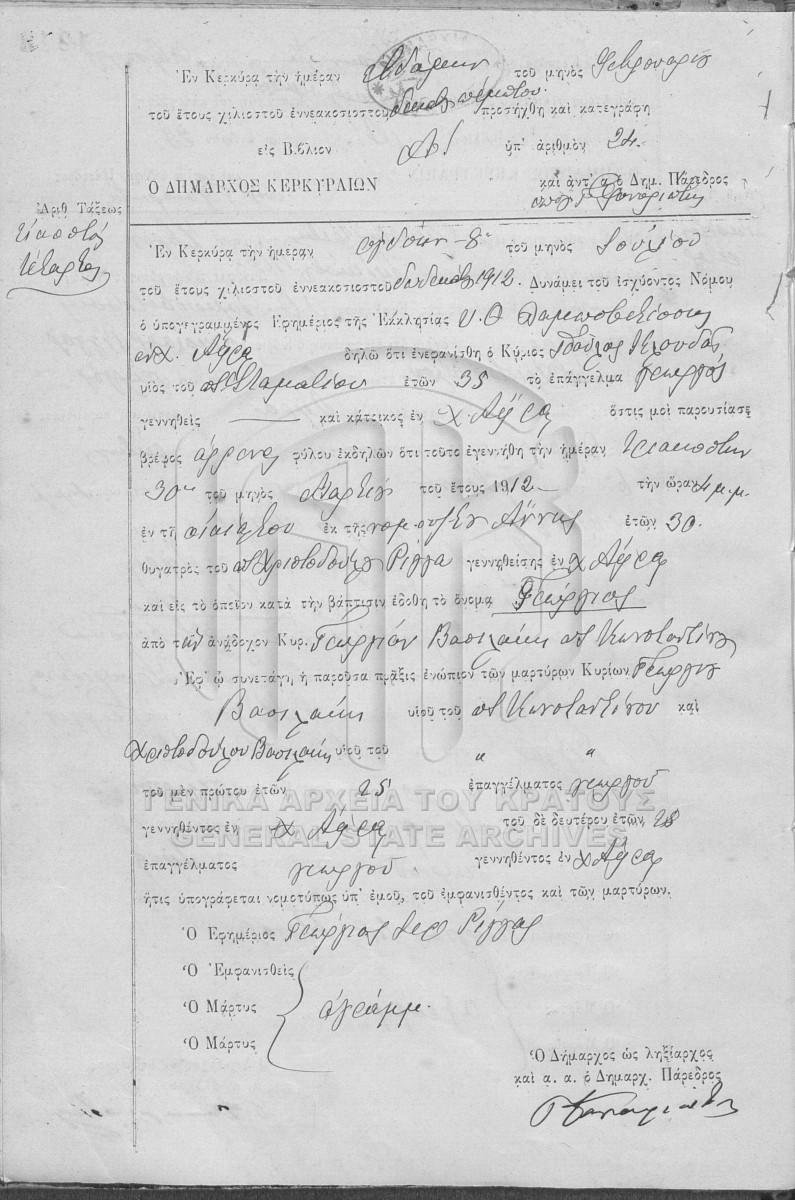 Ἐν Κερκύρᾳ τὴν ἡμέραν ἑβδόμην τοῦ μηνὸς Φεβρουαρίου
τοῦ ἔτους χιλιοστοῦ ἐννεακοσιοστοῦ δεκάτου πέμπτου προσήχθη καὶ κατεγράφη
εἰς Βιβλίον Α! ὑπ' ἀριθμὸν 24.
Ο ΔΗΜΑΡΧΟΣ ΚΕΡΚΥΡΑΙΩΝ καὶ ἀντ' α. ὁ Δημ. Πάρεδρος
Ἀριθ Τάξεως
εἰκοστὸς
τέταρτος
Ἐν Κερκύρᾳ τὴν ἡμέραν ὀγδόην - 8ην τοῦ μηνὸς Ἰουλίου
τοῦ ἔτους χιλιοστοῦ ἐννεακοσιοστοῦ δωδεκάτου 1912. Δυνάμει τοῦ ἰσχύοντος Νόμου
ὁ ὑπογεγραμμένος Ἐφημέριος τῆς Ἐκκλησίας Υ. Θ.
χ. Ἄφρα δηλῶ ὅτι ἐνεφανίσθη ὁ Κύριος Παῦλος
υἱὸς τοῦ ποτὲ Σταματίου ἐτῶν 35 τὸ ἐπάγγελμα γεωργὸς
γεννηθεὶς — καὶ κάτοικος ἐν χ. Ἄφρα ὅστις μοὶ παρουσίασε
βρέφος ἄρρενος φύλου ἐκδηλῶν ὅτι τοῦτο ἐγεννήθη τὴν ἡμέραν τριακοστὴν
30ην τοῦ μηνὸς Μαρτίου τοῦ ἔτους 1912 — τὴν ὥραν 4 μ.μ.
ἐν τῇ οἰκίᾳ του ἐκ τῆς νομ. συζύγου Ἄννης ἐτῶν 30.
θυγατρὸς τοῦ ποτὲ Χριστοδούλου Ρίγγα γεννηθείσης ἐν χ Ἄφρα
καὶ εἰς τὸ ὁποῖον κατὰ τὴν βάπτισιν ἐδόθη τὸ ὄνομα Γεώργιος
ἀπὸ τὸν ἀνάδοχον Κυρ. Γεώργιον Βασιλάκην ποτὲ Κωνσταντίνου
Ἐφ' ᾧ συνετάγη ἡ παροῦσα πρᾶξις ἐνώπιον τῶν μαρτύρων Κυρίων Γεωργίου
Βασιλάκη υἱοῦ τοῦ ποτὲ Κωνσταντίνου καὶ
Χριστοδούλου Βασιλάκη υἱοῦ τοῦ " "
τοῦ μὲν πρώτου ἐτῶν 25 ἐπαγγέλματος γεωργοῦ
ΓΕΝΙΚΑ ΑΡΧΕΙΑ ΤΟΥ ΚΡΑΤΟΥΣ
γεννηθέντος ἐν χ Ἄφρα τοῦ δὲ δευτέρου ἐτῶν 28
GENERAL STATE ARCHIVES
ἐπαγγέλματος γεωργοῦ γεννηθέντος ἐν χ Ἄφρα
ἥτις ὑπογράφεται νομοτύπως ὑπ' ἐμοῦ, τοῦ ἐμφανισθέντος καὶ τῶν μαρτύρων.
Ὁ Ἐφημέριος Γεώργιος Ἱερ Ρίγγας
Ὁ Ἐμφανισθεὶς
Ὁ Μάρτυς ἀγράμμ.
Ὁ Μάρτυς
Ὁ Δήμαρχος ὡς ληξίαρχος
καὶ α. α. ὁ Δημαρχ. Πάρεδρος